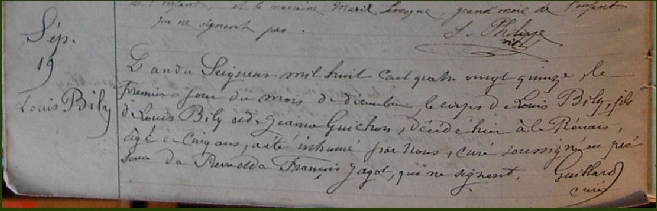 l'enfant, et la marraine Marie Levesque, grand'mère de l'enfant
qui ne signent pas.
J. Philippe
Sép.
19
Louis Bily
L'an du Seigneur mil huit cent quatre vingt quinze, le
premier jour du mois de décembre le corps de Louis Bily, fils
de Louis Bily et de Jeanne Guichon, décédé hier à la
âgé de cinq ans, a été inhumé par Nous, curé soussigné en pré
sence de François Jagot, qui ne signent.
Guillard
curé